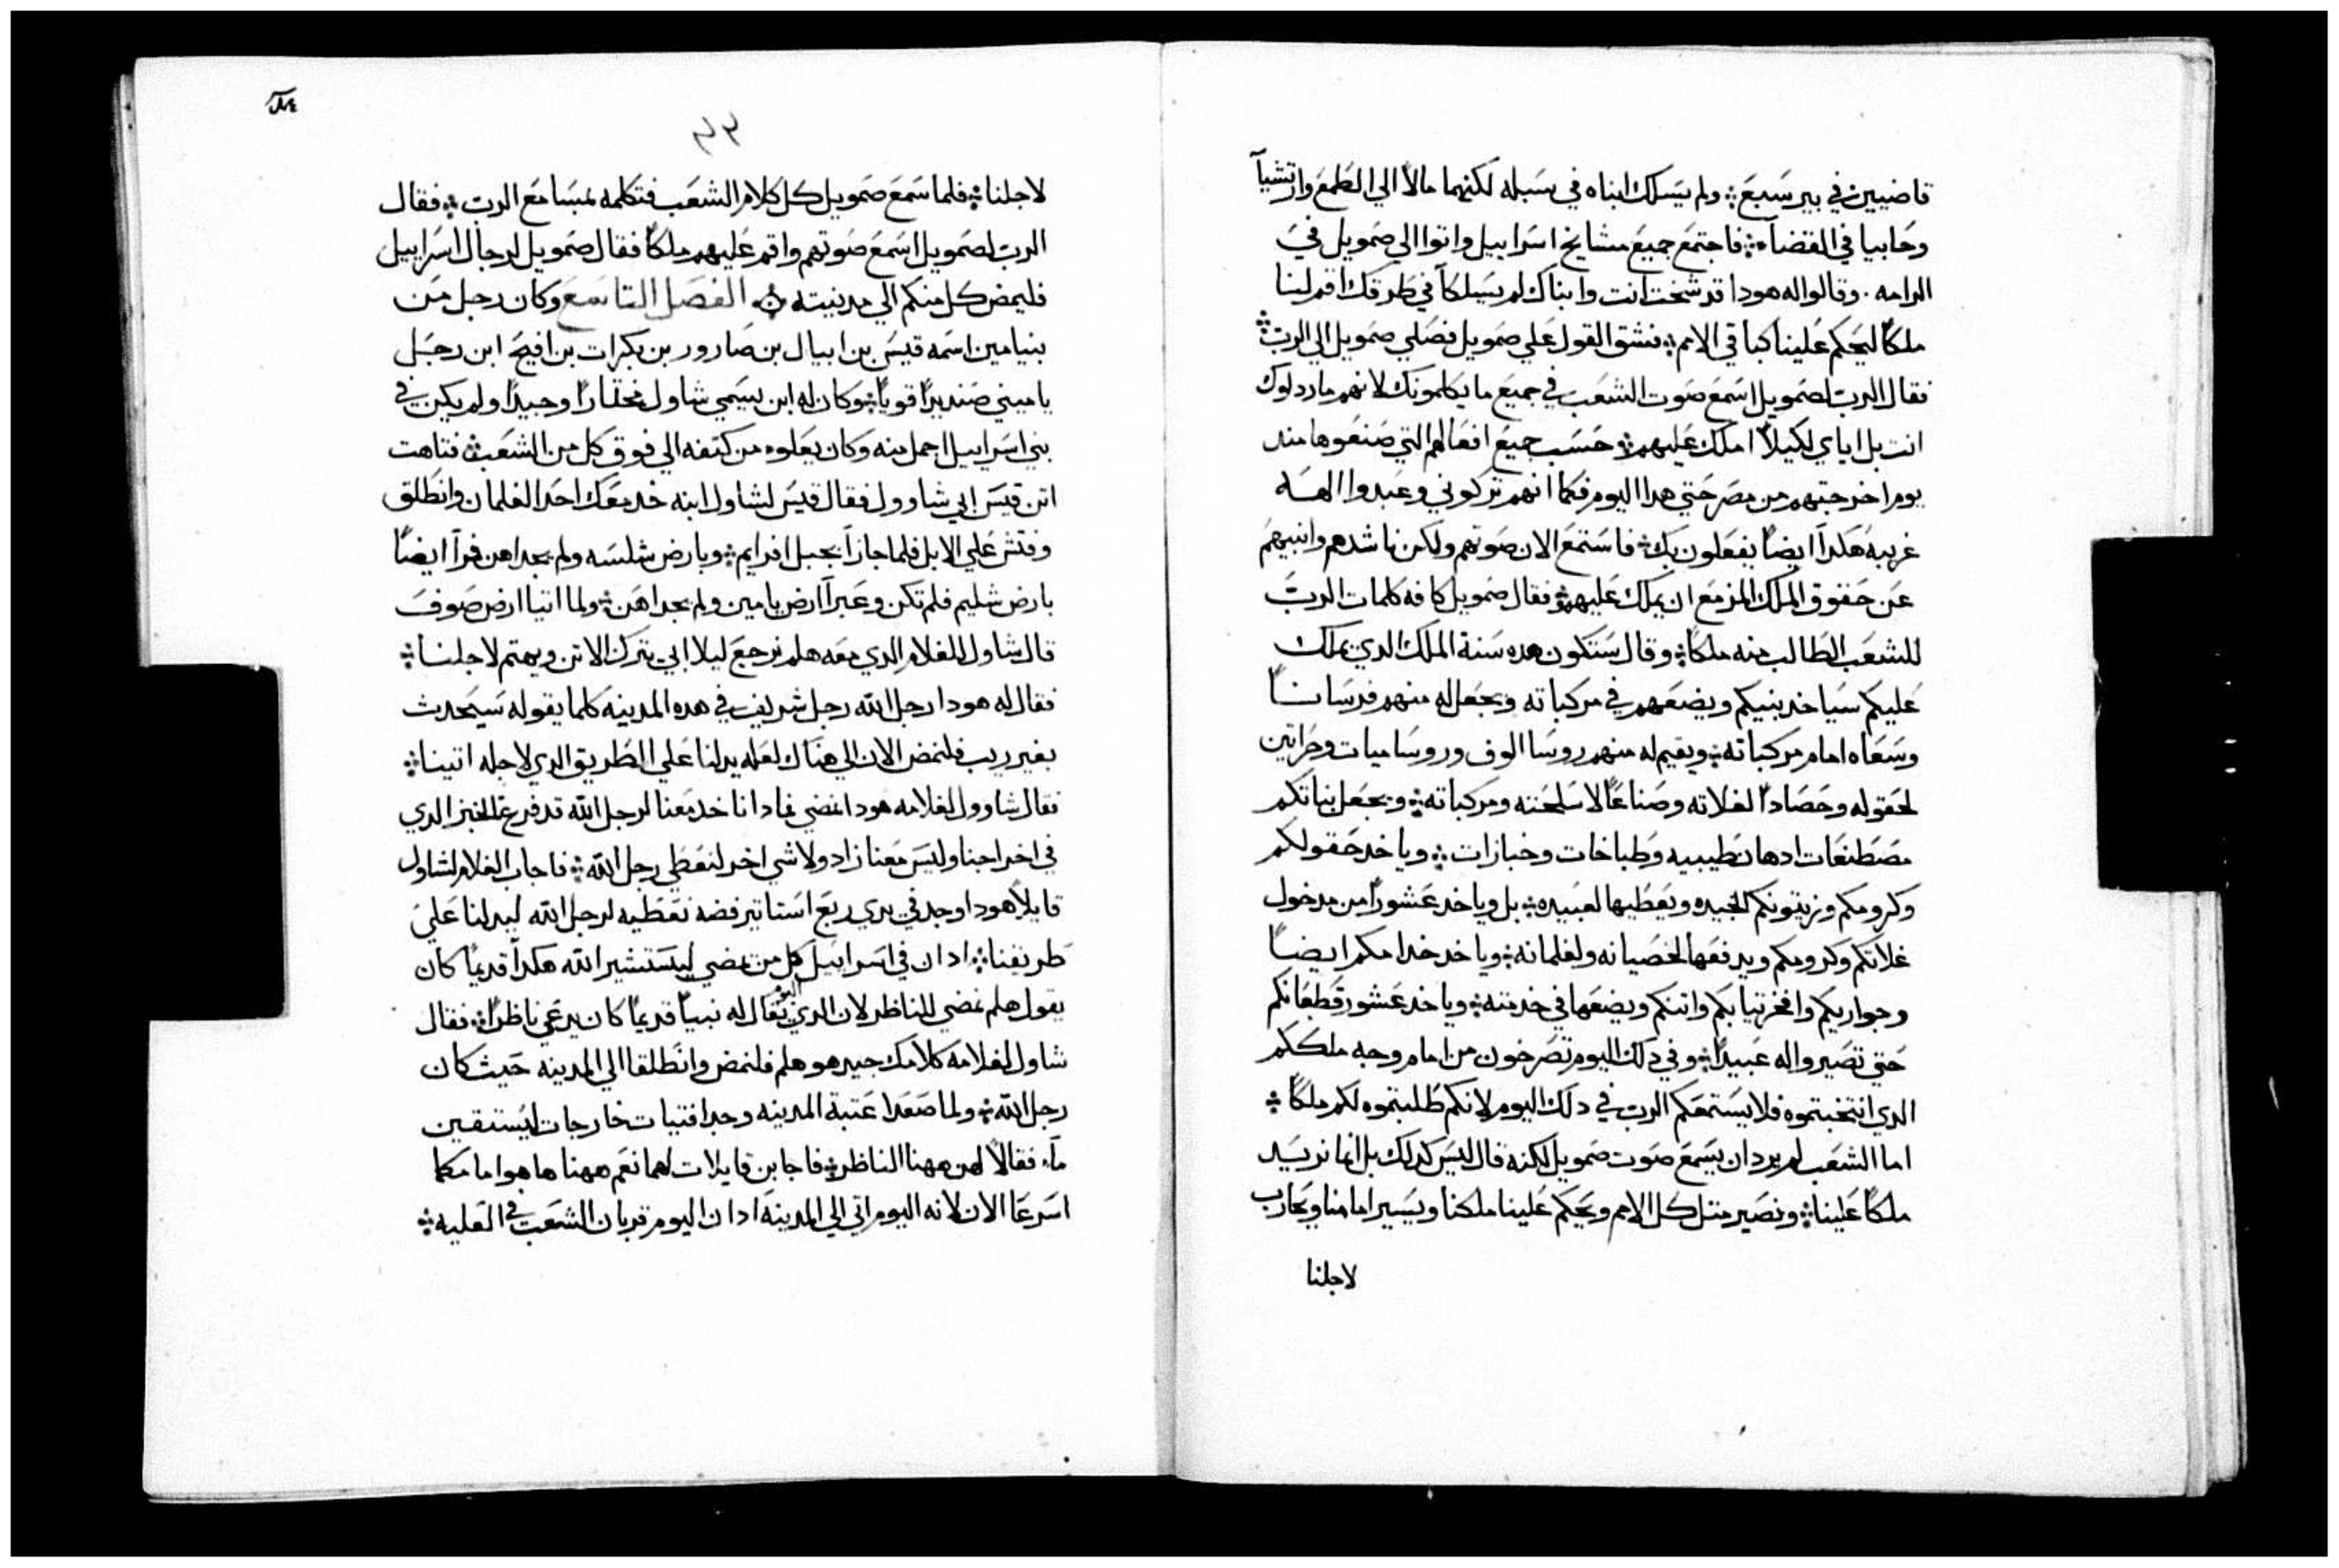 قاضيين في بير سبع ؞ ولم يسلك ابناه في سبله لكنهما مالا الي الطمع وارتشيا
وحابيا في القضاء ؞ فاجتمع جميع مشايخ اسراييل واتوا الي صمويل في
الرامه . وقالوا له هودا قد شخت انت وابناك لم يسلكا في طرقك اقم لنا
ملكا ليحكم علينا كباقي الامم ؞ فشق القول علي صمويل فصلي صمويل الي الرب ؞
فقال الرب لصمويل اسمع صوت الشعب في جميع ما يكلمونك لانهم ما ردلوك
انت بل اياي لكيلا املك عليهم ؞ وحسب جميع افعالهم التي صنعوها مند
يوم اخرجتهم من مصر حتي هدا اليوم فكما انهم تركوني وعبدوا الهه
غريبه هكدا ايضا يفعلون بك ؞ فاستمع الان صوتهم ولكن ناشدهم وانبيهم
عن حقوق الملك المزمع ان يملك عليهم ؞ فقال صمويل كافه كلمات الرب
للشعب الطالب منه ملكا ؞ وقال ستكون هده سنة الملك الدي يملك
عليكم سياخد بنيكم ويضعهم في مركباته ويجعل له منهم فرسانا
وسعاه امام مركباته ؞ ويقيم له منهم روسا الوف وروسا ميات وحراتين
لحقوله وحصادا لغلاته وصناعا لاسلحته ومركباته ؞ ويجعل بناتكم
مصطنعات ادهان طيبيه وطباخات وخبازات ؞ وياخد حقولكم
وكرومكم وزيتونكم الجيده ويعطيها لعبيده ؞ بل وياخد عشورا من مدخول
غلاتكم وكرومكم ويدفعها لخصيانه ولغلمانه ؞ وياخد خدامكم ايضا
وجواريكم وافخر تيابكم واتنكم ويضعها في خدمته ؞ وياخد عشور قطعانكم
حتي تصيروا له عبيدا ؞ وفي دلك اليوم تصرخون من امام وجه ملككم
الدي انتخبتموه فلا يستمعكم الرب في دلك اليوم لانكم طلبتموه لكم ملكا ؞
اما الشعب لم يرد ان يسمع صوت صمويل لكنه قال ليس كدلك بل انما نريد
ملكا علينا ؞ ونصير متل كل الامم ويحكم علينا ملكنا ويسير امامنا ويحارب
لاجلنا
٤٣
لاجلنا ؞ فلما سمع صمويل كل كلام الشعب فتكلمه بمسامع الرب ؞ فقال
الرب لصمويل اسمع صوتهم واقم عليهم ملكا فقال صمويل لرجال اسراييل
فليمض كل منكم الي مدينته ؞ الفصل التاسع وكان رجل من
بنيامين اسمه قيس بن ابيال بن صارور بن بكرات بن افيح ابن رجل
ياميني صنديدا قويا ؞ وكان له ابن يسمي شاول مختارا وجيدا ولم يكن في
بني اسراييل اجمل منه وكان يعلوه من كتفه الي فوق كل من الشعب ؞ فتاهت
اتن قيس ابي شاوول فقال قيس لشاول ابنه خد معك احد الغلمان وانطلق
وفتش علي الابل فلما جازا بجبل افرايم ؞ وبارض شلسه ولم يجداهن فمرا ايضا
بارض شليم فلم تكن وعبرا ارض يامين ولم يجداهن ؞ ولما اتيا ارض صوف
قال شاول للغلام الدي معه هلم نرجع ليلا ابي يترك الاتن ويهتم لاجلنا ؞
فقال له هودا رجل الله رجل شريف في هده المدينه كلما يقوله سيحدث
بغير ريب فلنمض الان الي هناك لعله يدلنا علي الطريق الدي لاجله اتينا ؞
فقال شاوول لغلامه هودا نمضي فمادا ناخد معنا لرجل الله قد فرغ الخبز الدي
في اخراجنا وليس معنا زاد ولا شي اخر لنعطي رجل الله ؞ فاجاب الغلام لشاول
قايلا هودا وجد في يدي ربع استاتير فضه نعطيه لرجل الله ليدلنا علي
طريقنا ؞ ادا ان في اسراييل كل من يمضي ليستشير الله هكدا قديما كان
يقول هلم نمضي للناظر لان الدي يقال له اليوم نبيا قديما كان يدعي ناظرا ؞ فقال
شاول لغلامه كلامك جيد هو هلم فلنمض وانطلقا الي المدينه حيث كان
رجل الله ؞ ولما صعدا عتبة المدينه وجدا فتيات خارجات ليستقين
ماء فقالا لهن ههنا الناظر ؞ فاجابن قايلات لهما نعم ههنا ها هو امامكما
اسرعا الان لانه اليوم اتي الي المدينه ادا ان اليوم قربان الشعب في العليه ؞